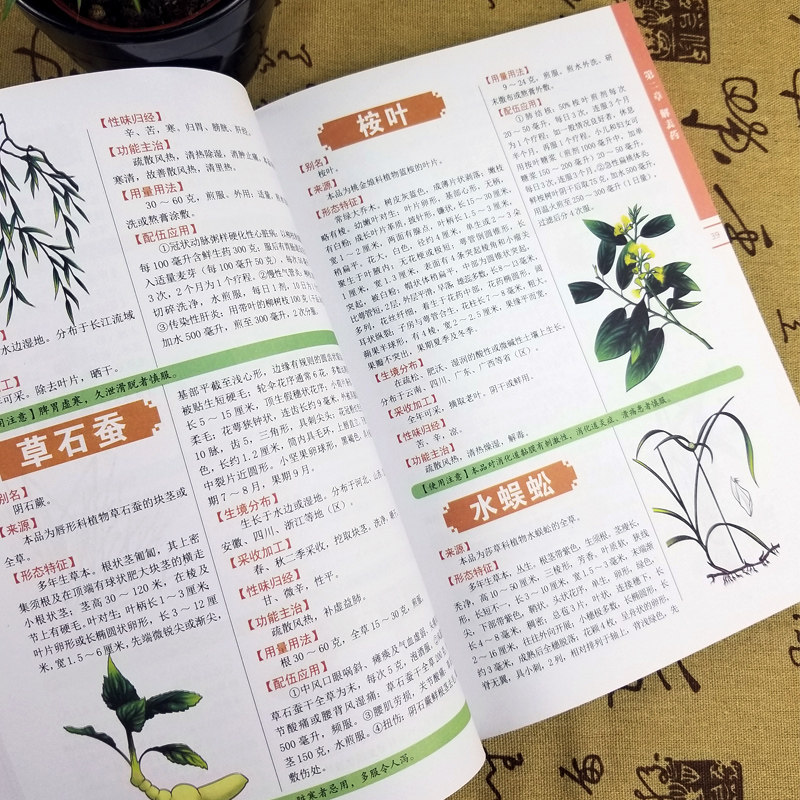 【性味归经】
辛、苦，寒，归胃、膀胱、肝经。
【功能主治】
疏散风热，清热除湿，消肿止痛。
寒清，故善散风热，清里热。
【用量用法】
30～60克，煎服。外用：适量，
洗或熬膏涂敷。
【配伍应用】
①冠状动脉粥样硬化性心脏病：
每100毫升含鲜生药300克；服后有胃
入适量麦芽（每100毫升50克），每次
3次，2个月为1个疗程。②慢性气管炎：
切碎洗净，水煎服，每日1剂，10日
③传染性肝炎：用带叶的柳树枝100克
加水500毫升，煎至300毫升，2次分服。
水边湿地。分布于长江流域
加工】
可采。除去叶片，晒干。
用注意】脾胃虚寒，久泄滑脱者慎服。
草石蚕
别名】
阴石蕨。
【来源】
本品为唇形科植物草石蚕的块茎或
全草。
【形态特征】
多年生草本。根状茎匍匐，其上密
集须根及在顶端有球状肥大块茎的横走
小根状茎；茎高30～120米，在棱及
节上有硬毛。叶对生；叶柄长1～3厘米；
叶片卵形或长椭圆状卵形，长3～12厘
米，宽1.5～6厘米，先端微锐尖或渐尖，
基部平截至浅心形，边缘有规则的圆齿状
被贴生短硬毛；轮伞花序通常6花，
长5～15厘米，顶生假穗状花序；小
柔毛；花萼狭钟状，连齿长约9毫米，外被
10脉，齿5，三角形，具刺尖头；花冠粉
色，长约1.2厘米，筒内具毛环，上唇直立，
中裂片近圆形。小坚果卵球形，黑褐色，
期7～8月，果期9月。
【生境分布】
生长于水边或湿地。分布于河北、山
安徽、四川、浙江等地（区）。
【采收加工】
春、秋二季采收，挖取块茎，洗净，
【性味归经】
甘、微辛，性平。
【功能主治】
疏散风热，补虚益肺。
【用量用法】
根30～60克，全草15～30克，煎
【配伍应用】
①中风口眼㖞斜，瘫痪及气血虚弱，
草石蚕干全草为末，每次5克，泡酒服。
节酸痛或腰背风湿痛：草石蚕干全草
500毫升，频服。③腰肌劳损，关节酸痛：
茎150克，水煎服。④扭伤：阴石蕨鲜根茎
敷伤处。
脏寒者忌用，多服令人泻。
桉叶
【别名】
桉叶。
【来源】
本品为桃金娘科植物蓝桉的叶片。
【形态特征】
常绿大乔木，树皮灰蓝色，成薄片状剥落；嫩枝
略有棱。幼嫩叶对生；叶片卵形，基部心形，无柄，
有白粉，成长叶片革质，披针形，镰状，长15～30厘米，
宽1～2厘米，两面有腺点，叶柄长1.5～3厘米，
稍扁平，花大，白色，径约4厘米，单生或2～3朵
聚生于叶腋内，无花梗或极短；萼管倒圆锥形，长
1厘米，宽1.3厘米，表面有4条突起棱角和小瘤状
突起，被白粉；帽状体稍扁平，中部为圆锥状突起，
比萼管短，2层，外层平滑，早落；雄蕊多数，长8～13毫米，
多列，花丝纤细，看生于花药中部，花药椭圆形，阔
耳状纵裂；子房与萼管合生，花柱长7～8毫米，粗大。
蒴果半球形，有4棱，宽2～2.5厘米，果缘平而宽，
果瓣不突出，果期夏季及冬季。
【生境分布】
在疏松、肥沃、湿润的酸性或微碱性土壤上生长，
分布于云南、四川、广东、广西等省（区）。
【采收加工】
全年可采，摘取老叶，阴干或鲜用。
【性味归经】
苦、辛，凉。
【功能主治】
疏散风热，清热燥湿，解毒。
【使用注意】本品对消化道黏膜有刺激性，消化道炎症、溃疡患者慎服。
【用量用法】
9～24克，煎服，煎水外洗，研
末散布或熬膏外敷。
【配伍应用】
①肺结核：50%桉叶煎剂每次
20～50毫升，每日3次，连服3个月
为1个疗程，如一般情况良好者，休息
半个月，再服1个疗程。小儿和妇女可
用桉叶糖浆（煎剂1000毫升中，加单
糖浆150～200毫升）20～50毫升，
每日3次，连服3个月。②急性扁桃体炎：
鲜桉树叶阴干后取75克，加水500毫升，
用温火煎至250～200毫升（1日量），
过滤后分4次服。
水蜈蚣
【来源】
本品为莎草科植物水蜈蚣的全草。
【形态特征】
多年生草本，丛生，根茎带紫色，生须根，茎瘦长，
先净，高10～50厘米，三棱形，芳香。叶质软，狭线
形，长短不一，长3～10厘米，宽1.5～3毫米，末端渐
尖，下部带紫色，鞘状。头状花序，单生，卵形，绿色，
长4～8毫米，稠密；总苞3片，叶状，连接穗下，长
2～16厘米，往往外向开展；小穗极多数，长椭圆形，长
约3毫米，成熟后全穗脱落；花颖4枚，呈舟状的卵形，
脊无翼，具小刺，2列，相对排列于轴上，背浅绿色，先
第二章 解表药
39